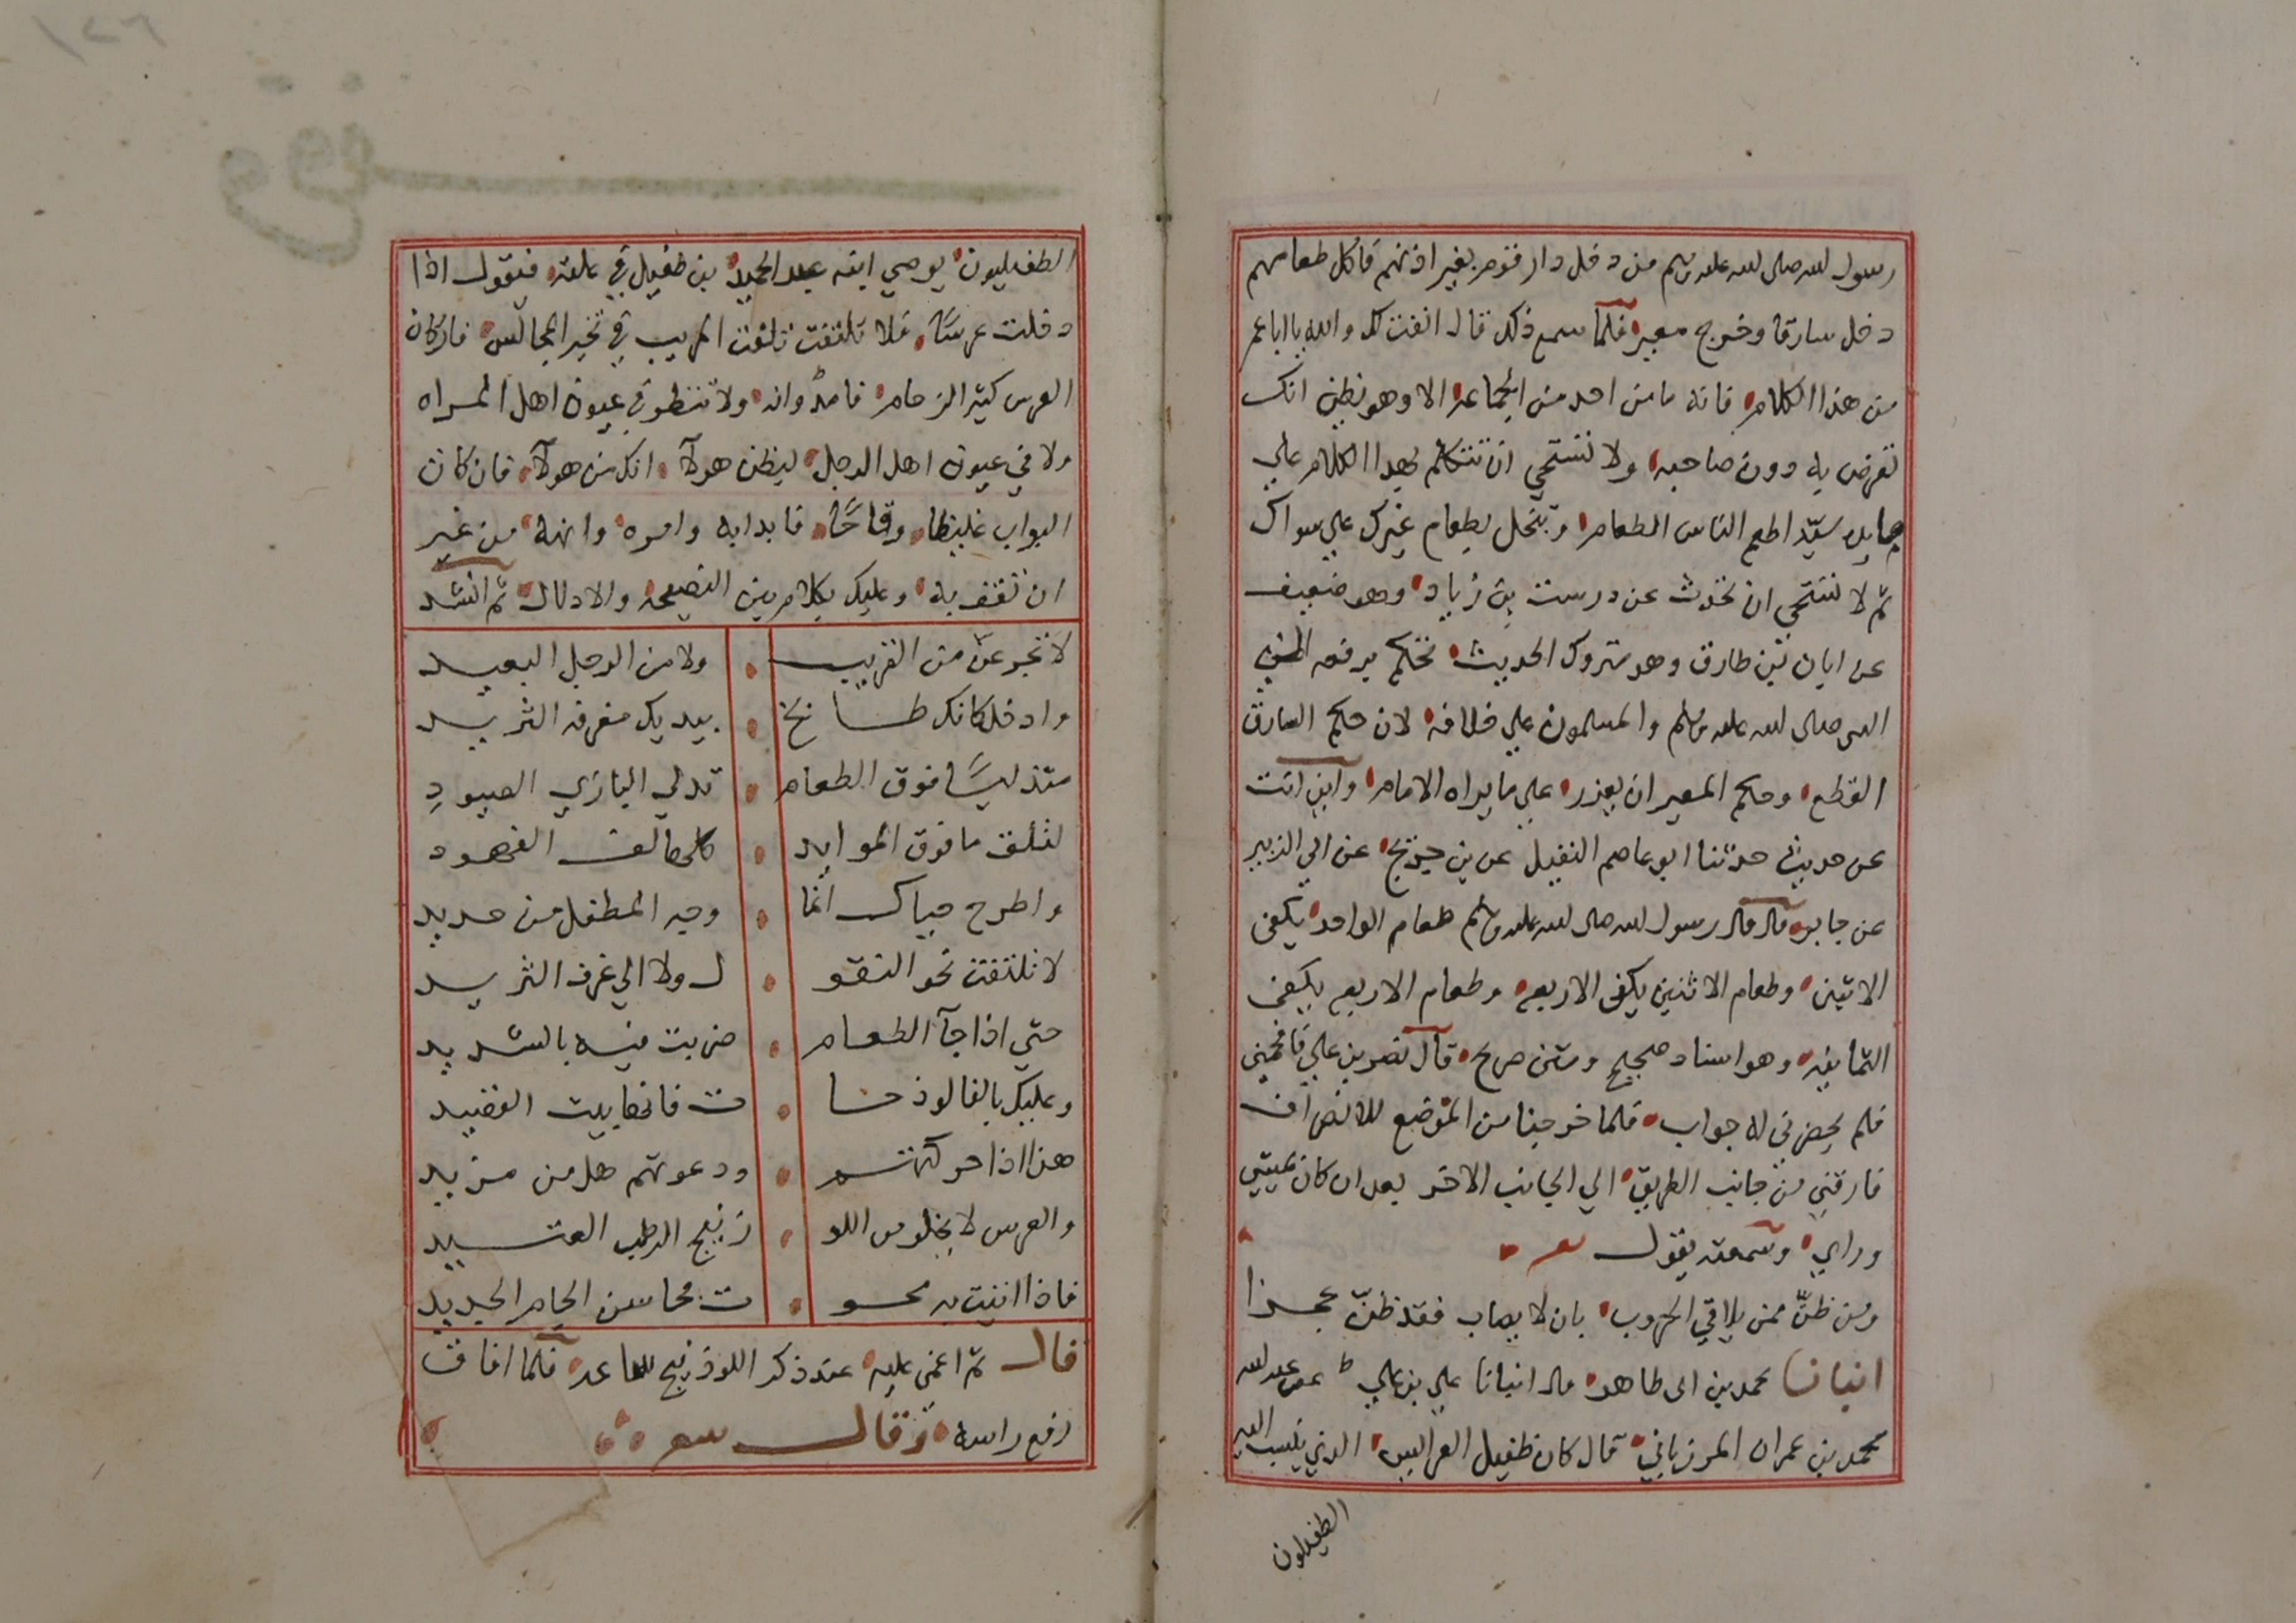 رسول لله صلى لله عليه وسلم من دخل دار قوم بغير اذنهم فاكل طعامهم
دخل سارقا وخرج مغير فلما سمع ذلك قال انفت لك والله يا ابا عمر
من هذا الكلام فانه ما من احد من الجماعه الا وهو يظن انك
تعرض به دون صاحبه ولا تستحي ان تتكلم بهدا الكلام علي
سيّد اطعم الناس الطعام وتبخل بطعام غيرك علي سواك
ثم لا تستحي ان تحدث عن درست بن زياد وهو ضعيف
عن ابان بن طارق وهو متروك الحديث تحكم برفعه الي
النبي صلى لله عليه وسلم والمسلمون علي خلافه لان حكم السارق
القطع وحكم المغير ان يعزر علي ما يراه الامام واين انت
عن حديث حدثنا ابو عاصم النبيل عن بن جريج عن ابي الزبير
عن جابر قال قال رسول لله صلى لله عليه وسلم طعام الواحد يكفى
الاثنين وطعام الاثنين يكفى الاربعه وطعام الاربعه يكفى
الثمانيه وهو اسناد صحيح ومتن صريح قال نصر بن علي فافحمني
فلم يحضرني له جواب فلما خرجنا من الموضع للانصراف
فارقني من جانب الطريق الي الجانب الاخر بعد ان كان يمشي
وراي وسمعته يقول شعر
ومن ظنّ ممن يلاقي الحروب بان لا يصاب فقد ظنّ عجزا
انبانا محمد بن ابى طاهر قال انبانا علي بن علي عن ابى عبد لله
محمد بن عمران المرزباني قال كان طفيل العرايس الذي ينسب اليه
الطفيليون
الطفيليون يوصي ابنه عبد الحميد بن طفيل في علته فيقول اذا
دخلت عرسًا فلا تلتفت تلفت المريب في تخير المجالس فان كان
العرس كثير الزحام فامر وانه ولا تنظر في عيون اهل المراه
ولا في عيون اهل الرجل ليظن هولآ انك من هولآ فان كان
البواب غليظا وقاحًا فابدا به وامره وانهه من غير
ان تعنف به وعليك بكلام بين النصيحه والادلال ثم انشد
لا تجزعنّ من القريب ولا من الرجل البعيد
وادخل كانك طابخ بيديك مغرفه الثريد
متدليًا فوق الطعام تدلي البازي الصيود
لتلف ما فوق الموايد كلها لف الفهود
واطرح حياك انما وجه المطفل من حديد
لا تلتفت نحو البقو ل ولا الي غرف الثريد
حتي اذا جآ الطعام ضربت فيه بالشديد
وعليك بالفالوذجا ت فانها بيت القصيد
هذا اذا حركتهم ودعوتهم هل من مزيد
والعرس لا يخلو من اللو زنيج الرطب العتيد
فاذا اتيت به محو ت محاسن الجام الجديد
قال ثم اغمى عليه عند ذكر اللوذنيج ساعه فلما افاق
رفع راسه وقال شعر